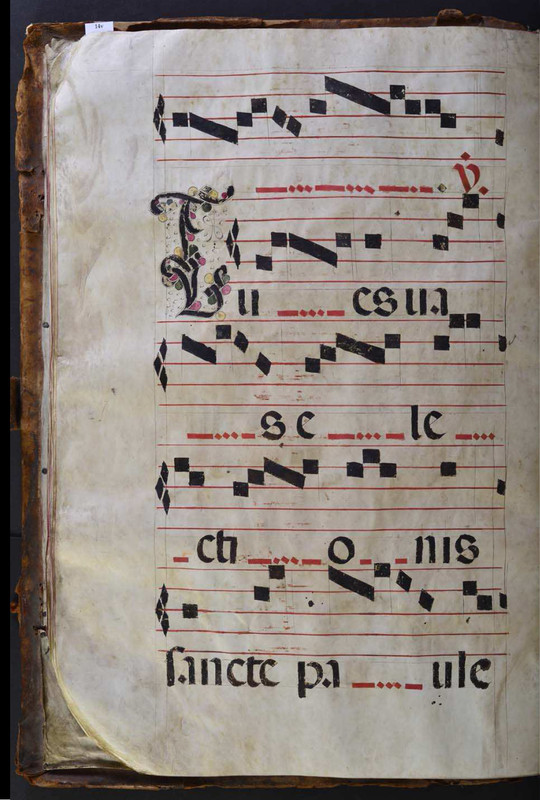 ℣.
Tu es ua
se le
cti o nis
sancte pa ule